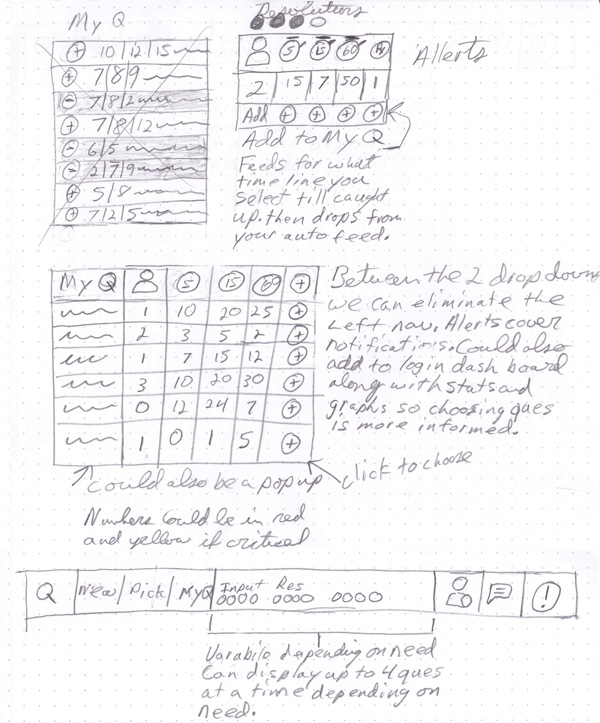 My Q
10/12/15
7/8/9
7/8/2
7/8/12
6/5
2/7/9
5/8
7/2/5
Resolutions
5 15 60
2 15 7 50 1
Add + + + +
Allerts
Add to My Q
Feeds for what
time line you
select till caught
up. then drops from
your auto feed.
My Q 5 15 60 +
1 10 20 25 +
2 3 5 2 +
1 7 15 12 +
3 10 20 30 +
0 12 24 7 +
1 0 1 5 +
Between the 2 drop downs
we can eliminate the
Left nav. Alerts cover
notifications. Could also
add to login dash board
along with stats and
graphs so choosing ques
is more informed.
Could also be a pop up
click to choose
Numbers could be in red
and yellow if critical
Q New/Pick/MyQ Input Res
0000 0000 0000 !
Varabile depending on need
Can display up to 4 ques
at a time depending on
need.